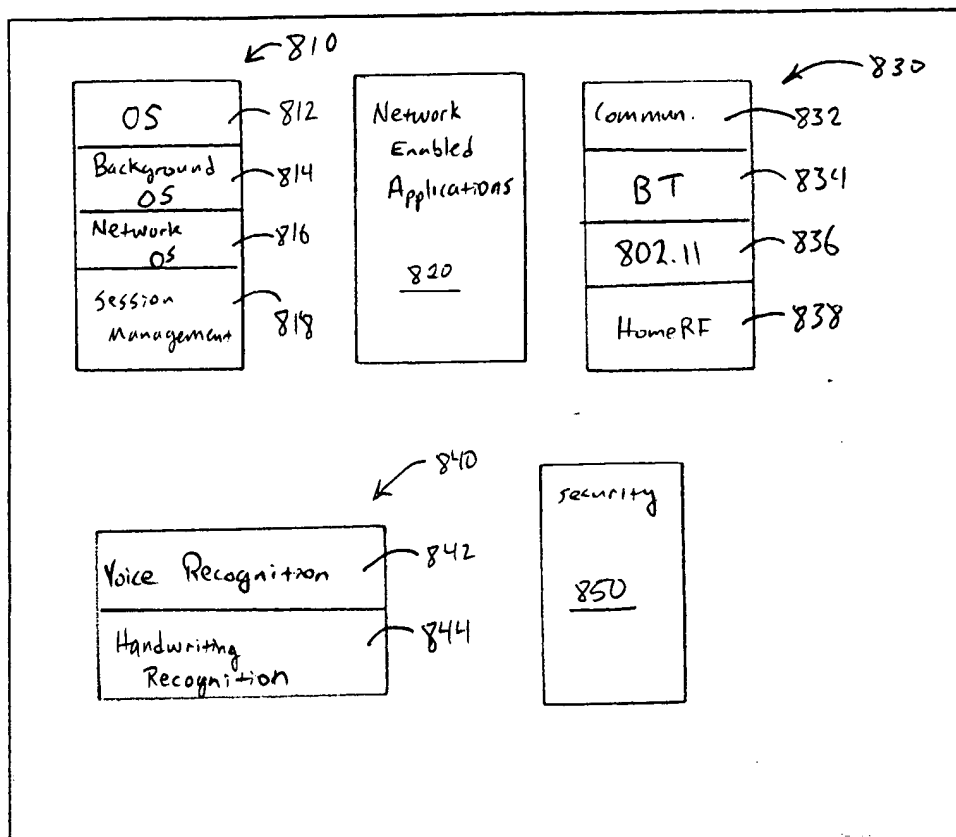 810
OS
812
Background
OS
814
Network
OS
816
Session
Management
818
Network
Enabled
Applications
820
830
Commun.
832
BT
834
802.11
836
HomeRF
838
840
Voice Recognition
842
Handwriting
Recognition
844
security
850